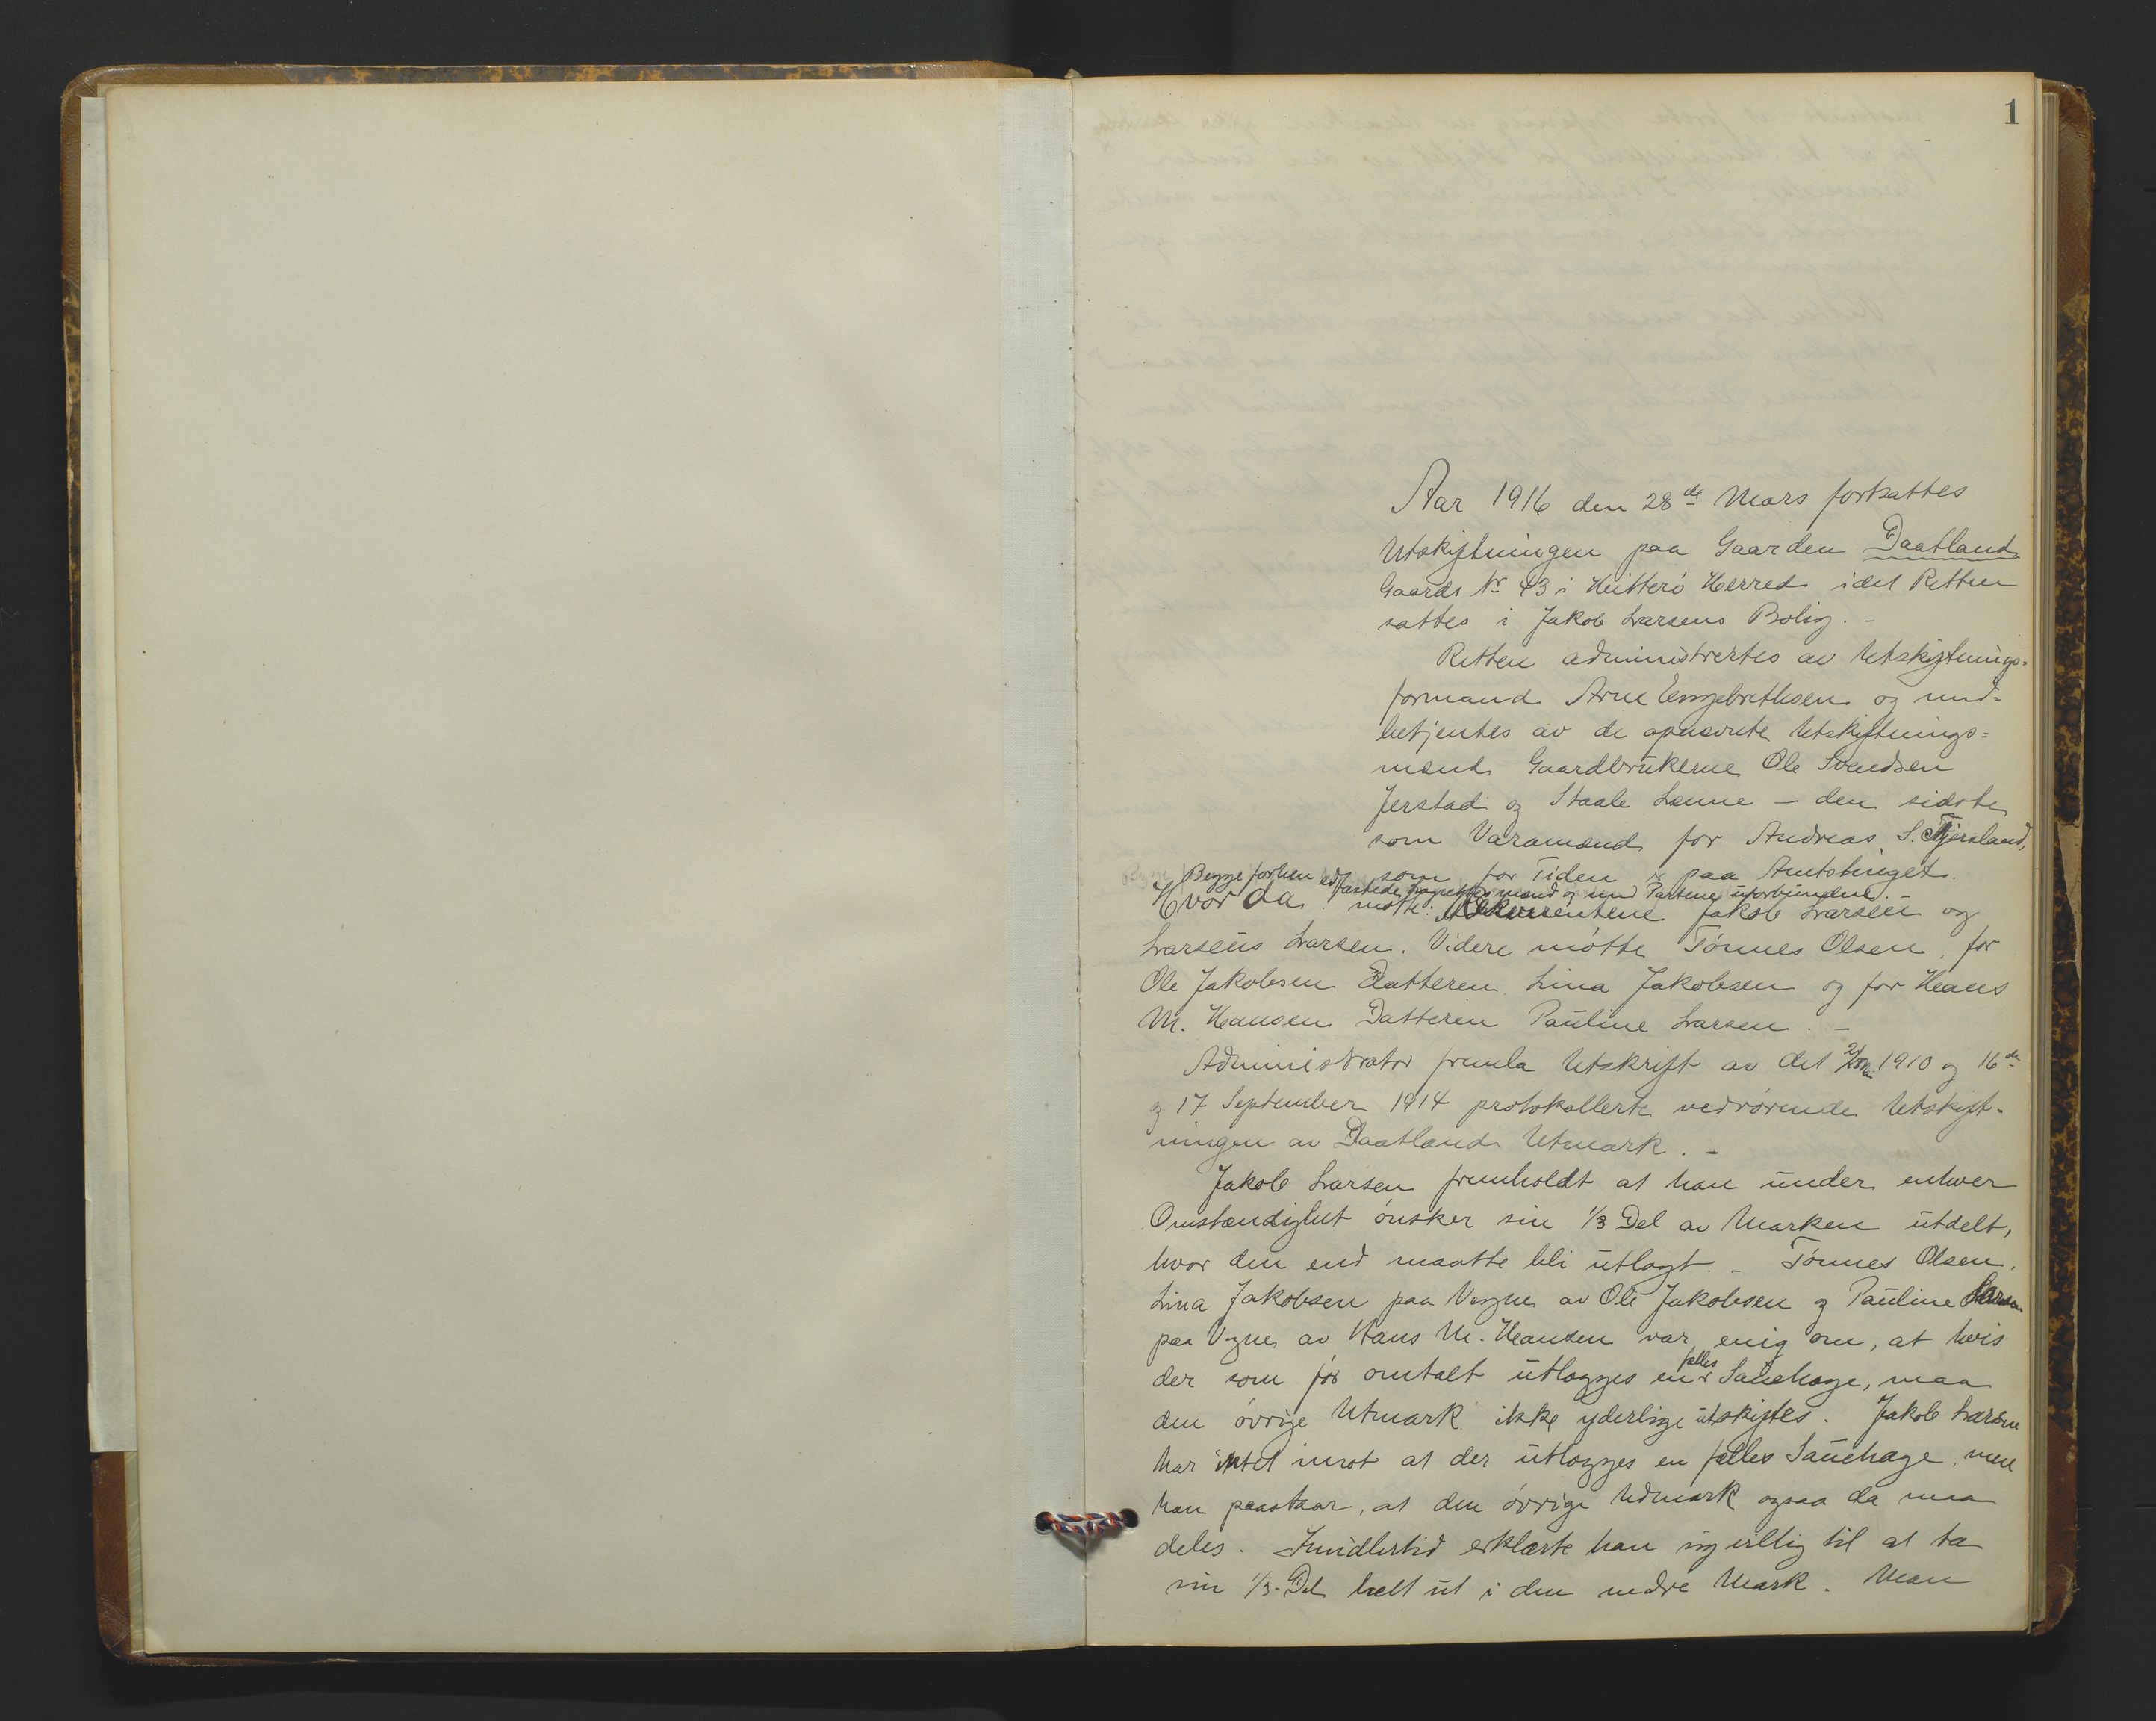 1
Aar 1916 den 28de Mars fortsattes
Utskiftningen paa Gaarden Daatland
Gaards Nr 43 i Hitterö Herred idet Retten
sattes i Jakob Larsens Bolig. -
Retten administrertes av Utskiftnings-
formand Arne Engebrethsen og med-
betjentes av de opnævnte Utskiftnings=
mænd Gaardbrukerne Ole Svendsen
Jerstad og Staale Lenne - den sidste
som Varamand for Andreas S. Fjersland,
som for Tiden er paa Amtstinget.
Begge forhen edfæstede Lagrettesmænd og med Partene uforbundene. -
Hvor da møtte: Rekvirentene Jakob Larsen og
Larseus Larsen. Videre møtte Tönnes Olsen, for
Ole Jakobsen Datteren Lina Jakobsen og for Hans
M. Hansen Datteren Pauline Larsen. -
Administrator fremla Utskrift av det 1910 og 16de
og 17 September 1914 protokollerte vedrørende Utskift-
ningen av Daatlands Utmark. -
Jakob Larsen fremholdt at han under enhver
Omstændighet ønsker sin 1/3 Del av Marken utdelt,
hvor den end maatte bli utlagt. - Tönnes Olsen,
Lina Jakobsen paa Vegne av Ole Jakobsen og Pauline Larsen
paa Vegne av Hans M. Hansen var enig om, at hvis
der som før omtalt utlægges en fælles Sauehage, maa
den øvrige Utmark ikke yderlige utskiftes. Jakob Larsen
har intet imot at der utlægges en fælles Sauehage, men
han paastaar, at den øvrige Udmark ogsaa da maa
deles. Imidlertid erklærte han sig villig til at ta
sin 1/3-Del helt ut i den nedre Mark. Man